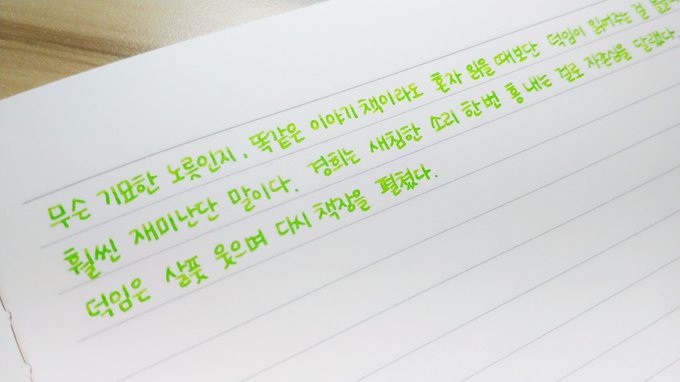 무슨 기묘한 노릇인지, 똑같은 이야기 책이라도 혼자 읽을 때보단 덕임이 읽어주는 걸
훨씬 재미난단 말이다. 경희는 새침한 소리 한 번 흥 내는 걸로 자존심을 달랬다.
덕임은 살풋 웃으며 다시 책장을 펼쳤다.